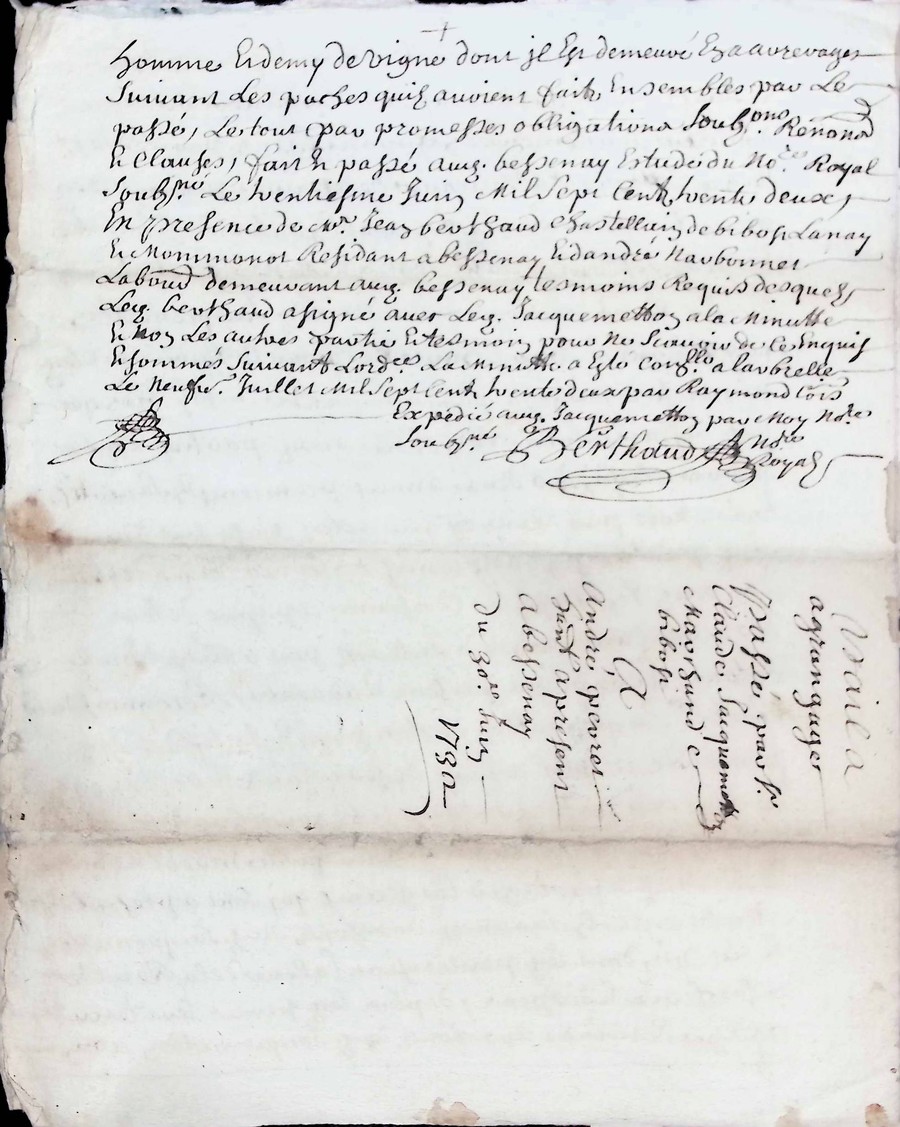 homme Et demy de vigne dont jl Est demeuré En arrerages
Suivant Les paches quils avoient faits Ensembles par Le
passé, Le tout par promesses obligations Soubs.ons Renonōns
Et Clauses, fait Et passé aud. bessenay Estude du No.re Royal
Soubs.né Le trentiesme Juin Mil Sept Cent trente deux,
En presence de Mr. Jean berthaud Chastellain de bibost Lanay
Et Mommonot Residant a bessenay Et d'andré Narbonnet
Labour. demeurant aud. bessenay tesmoins Requis desquels
Led. berthaud a signé avec Led. Jacquemetton a la Minutte
Et Non Les autres partie Et tesmoin pour Ne Scavoir de ce Enquis
Et sommés Suivant Lord.ce La Minutte a Esté Con.llé a Larbrelle
Le Neufv.e Juillet Mil Sept Cent trente deux par Raymond Cois
Expedié aud. Jacquemetton par Moy No.re
Soubs.né Berthaud No.re
Royal
Bail a
agrangages
Passé, par Sr.
Claude Jacquemetton
Marchand de
bibost
A
André peyret
a present
A bessenay
du 30.e Juin
1732